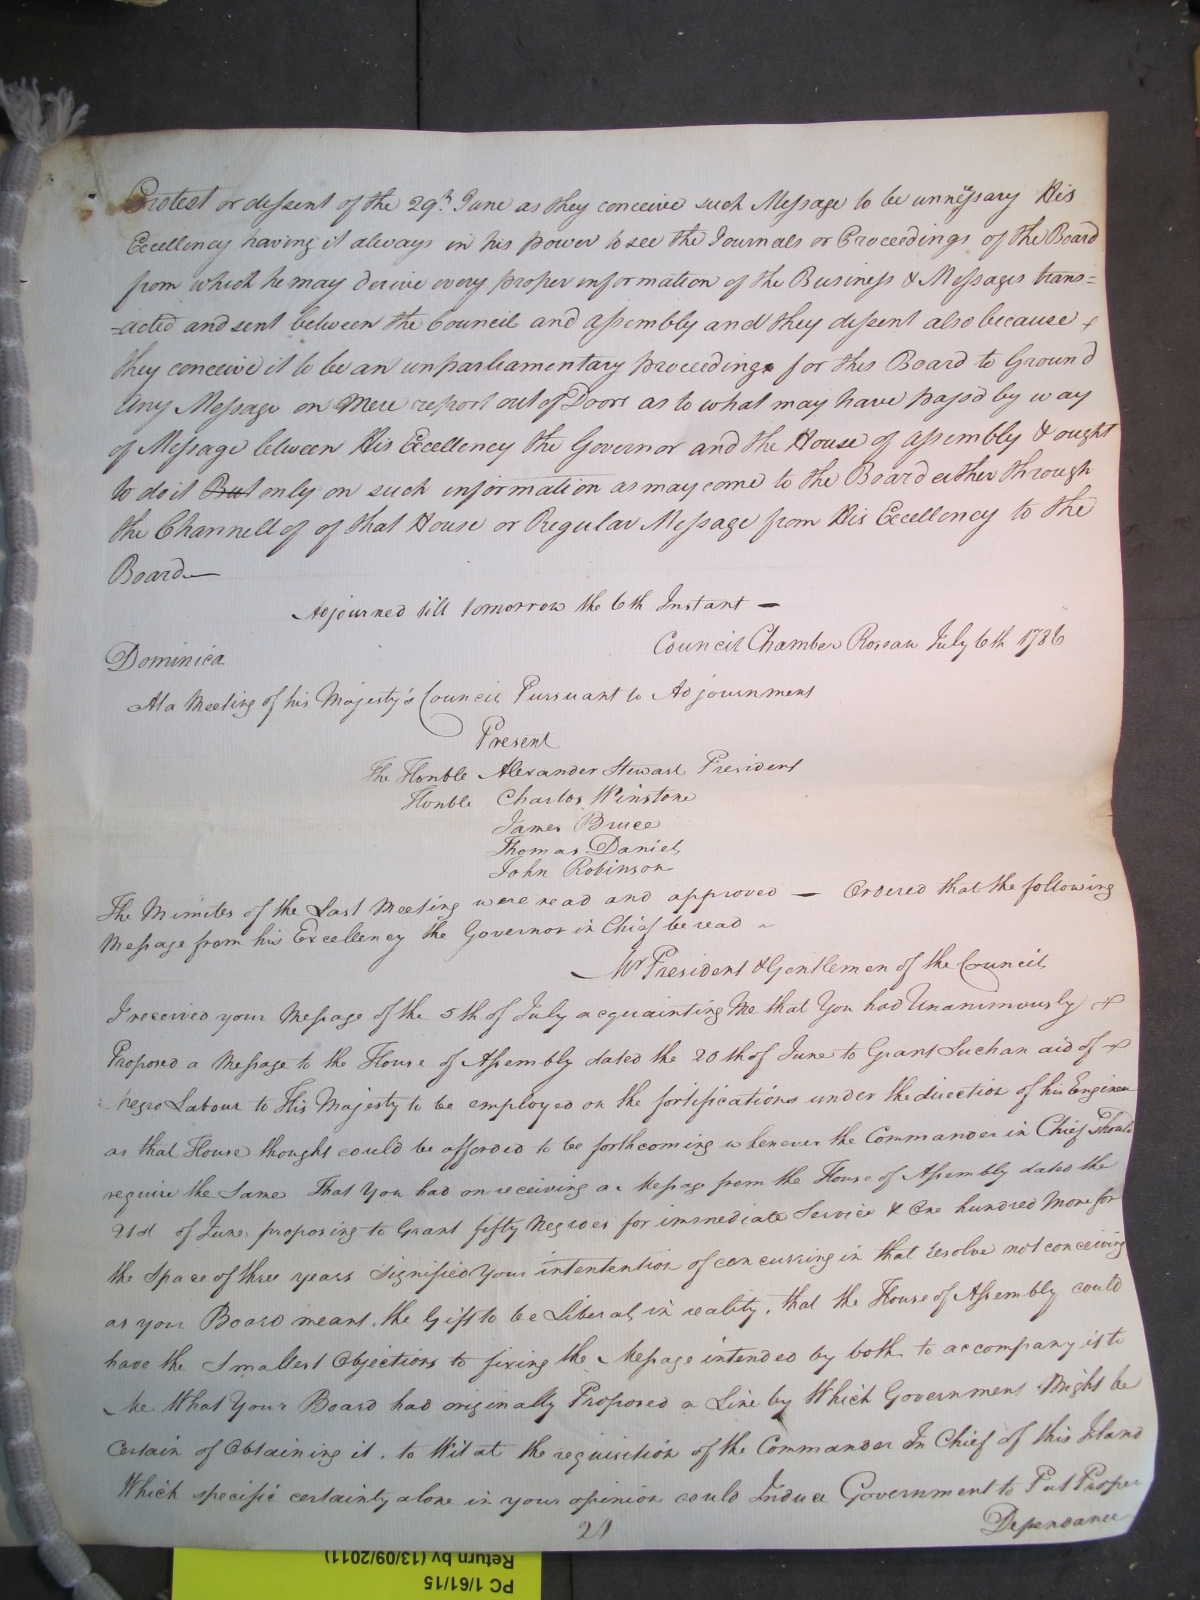 Protest or dissent of the 29th June as they conceive such Message to be unnessary His
Excellency having it always in his power to see the Journals or Proceedings of the Board
from which he may derive every proper information of the Business & Messages trans=
-acted and sent between the Council and Assembly and they dissent also because
they conceive it to be an unparliamentary proceeding for this Board to Ground
Any Message on Mere report out of Doors as to what may have pass'd by way
of Message between His Excellency the Governor and the House of Assembly & ought
to do it But only on such information as may come to the Board either through
the Channell of of that House or Regular Message from His Excellency to the
Board
Adjourned till tomorrow the 6th Instant
Council Chamber Roseau July 6th 1786
Dominica
At a Meeting of his Majesty's Council Pursuant to Adjournment
Present
The Honble Alexander Stewart President
Honble Charles Winstone
James Bruce
Thomas Daniel
John Robinson
The Minutes of the Last Meeting were read and approved — Ordered that the following
Message from his Excellency the Governor in Chief be read
Mr President & Gentlemen of the Council
I received your Message of the 5th of July acquainting Me that You had Unanimously
Proposed a Message to the House of Assembly dated the 20th of June to Grant Such an aid of
Negro Labour to His Majesty to be employed on the fortifications under the direction of his Engineer
as that House thought could be afforded to be forthcoming whenever the Commander in Chief Should
require the Same That You had on receiving a Message from the House of Assembly dated the
21st of June proposing to Grant fifty Negroes for immediate Service & One hundred More for
the Space of three years Signified Your intentention of concurring in that resolve not conceiving
as your Board meant the Gift to be Liberal in reality, that the House of Assembly could
have the Smallest Objections to fixing the Message intended by both to accompany it to
Me What Your Board had originally Proposed a Line by Which Government Might be
Certain of Obtaining it, to Wit at the requisition of the Commander In Chief of this Island
Which specific certainty alone in your opinion could Induce Government to Put Proper
Dependance
24
PC 1/61/15
Return by (13/09/2011)